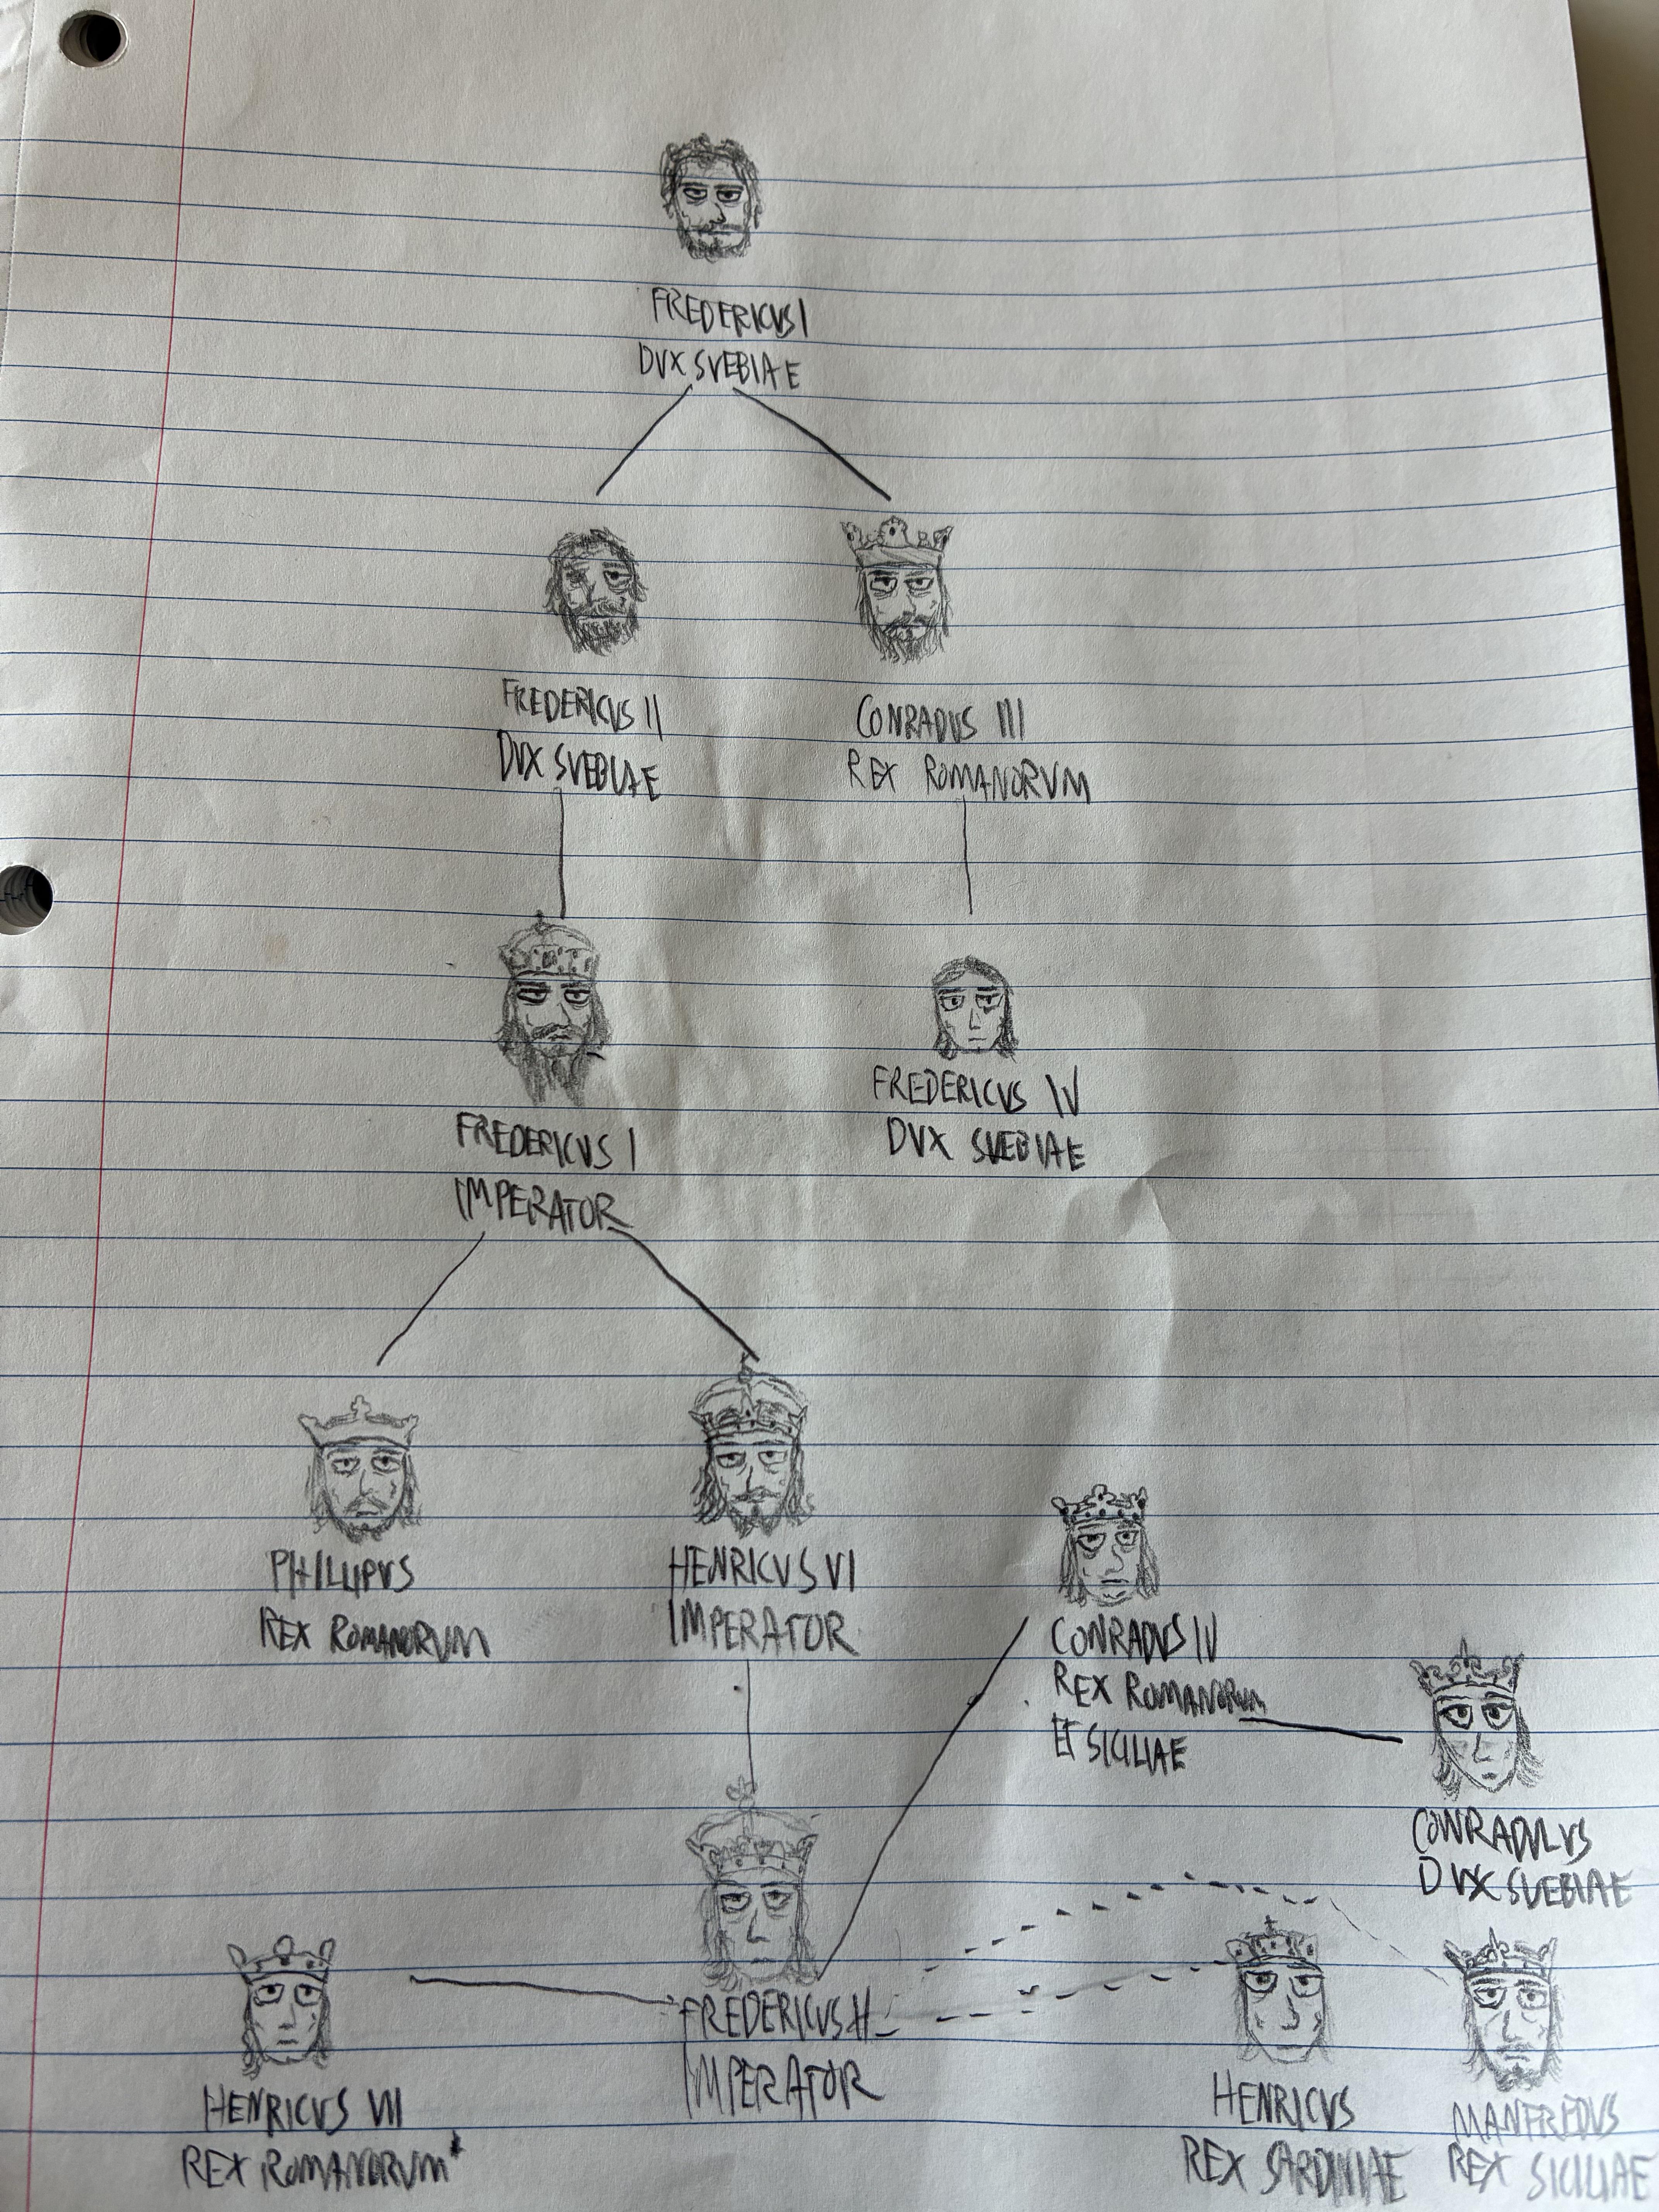 FREDERICVS I
DVX SVEBIAE
FREDERICVS II
DVX SVEBIAE
CONRADVS III
REX ROMANORVM
FREDERICVS I
IMPERATOR
FREDERICVS IV
DVX SVEBIAE
PHILLIPVS
REX ROMANORVM
HENRICVS VI
IMPERATOR
CONRADVS IV
REX ROMANORVM
ET SICILIAE
CONRADVLVS
DVX SVEBIAE
FREDERICVS II
IMPERATOR
HENRICVS VII
REX ROMANORVM*
HENRICVS
REX SARDINIAE
MANFREDVS
REX SICILIAE